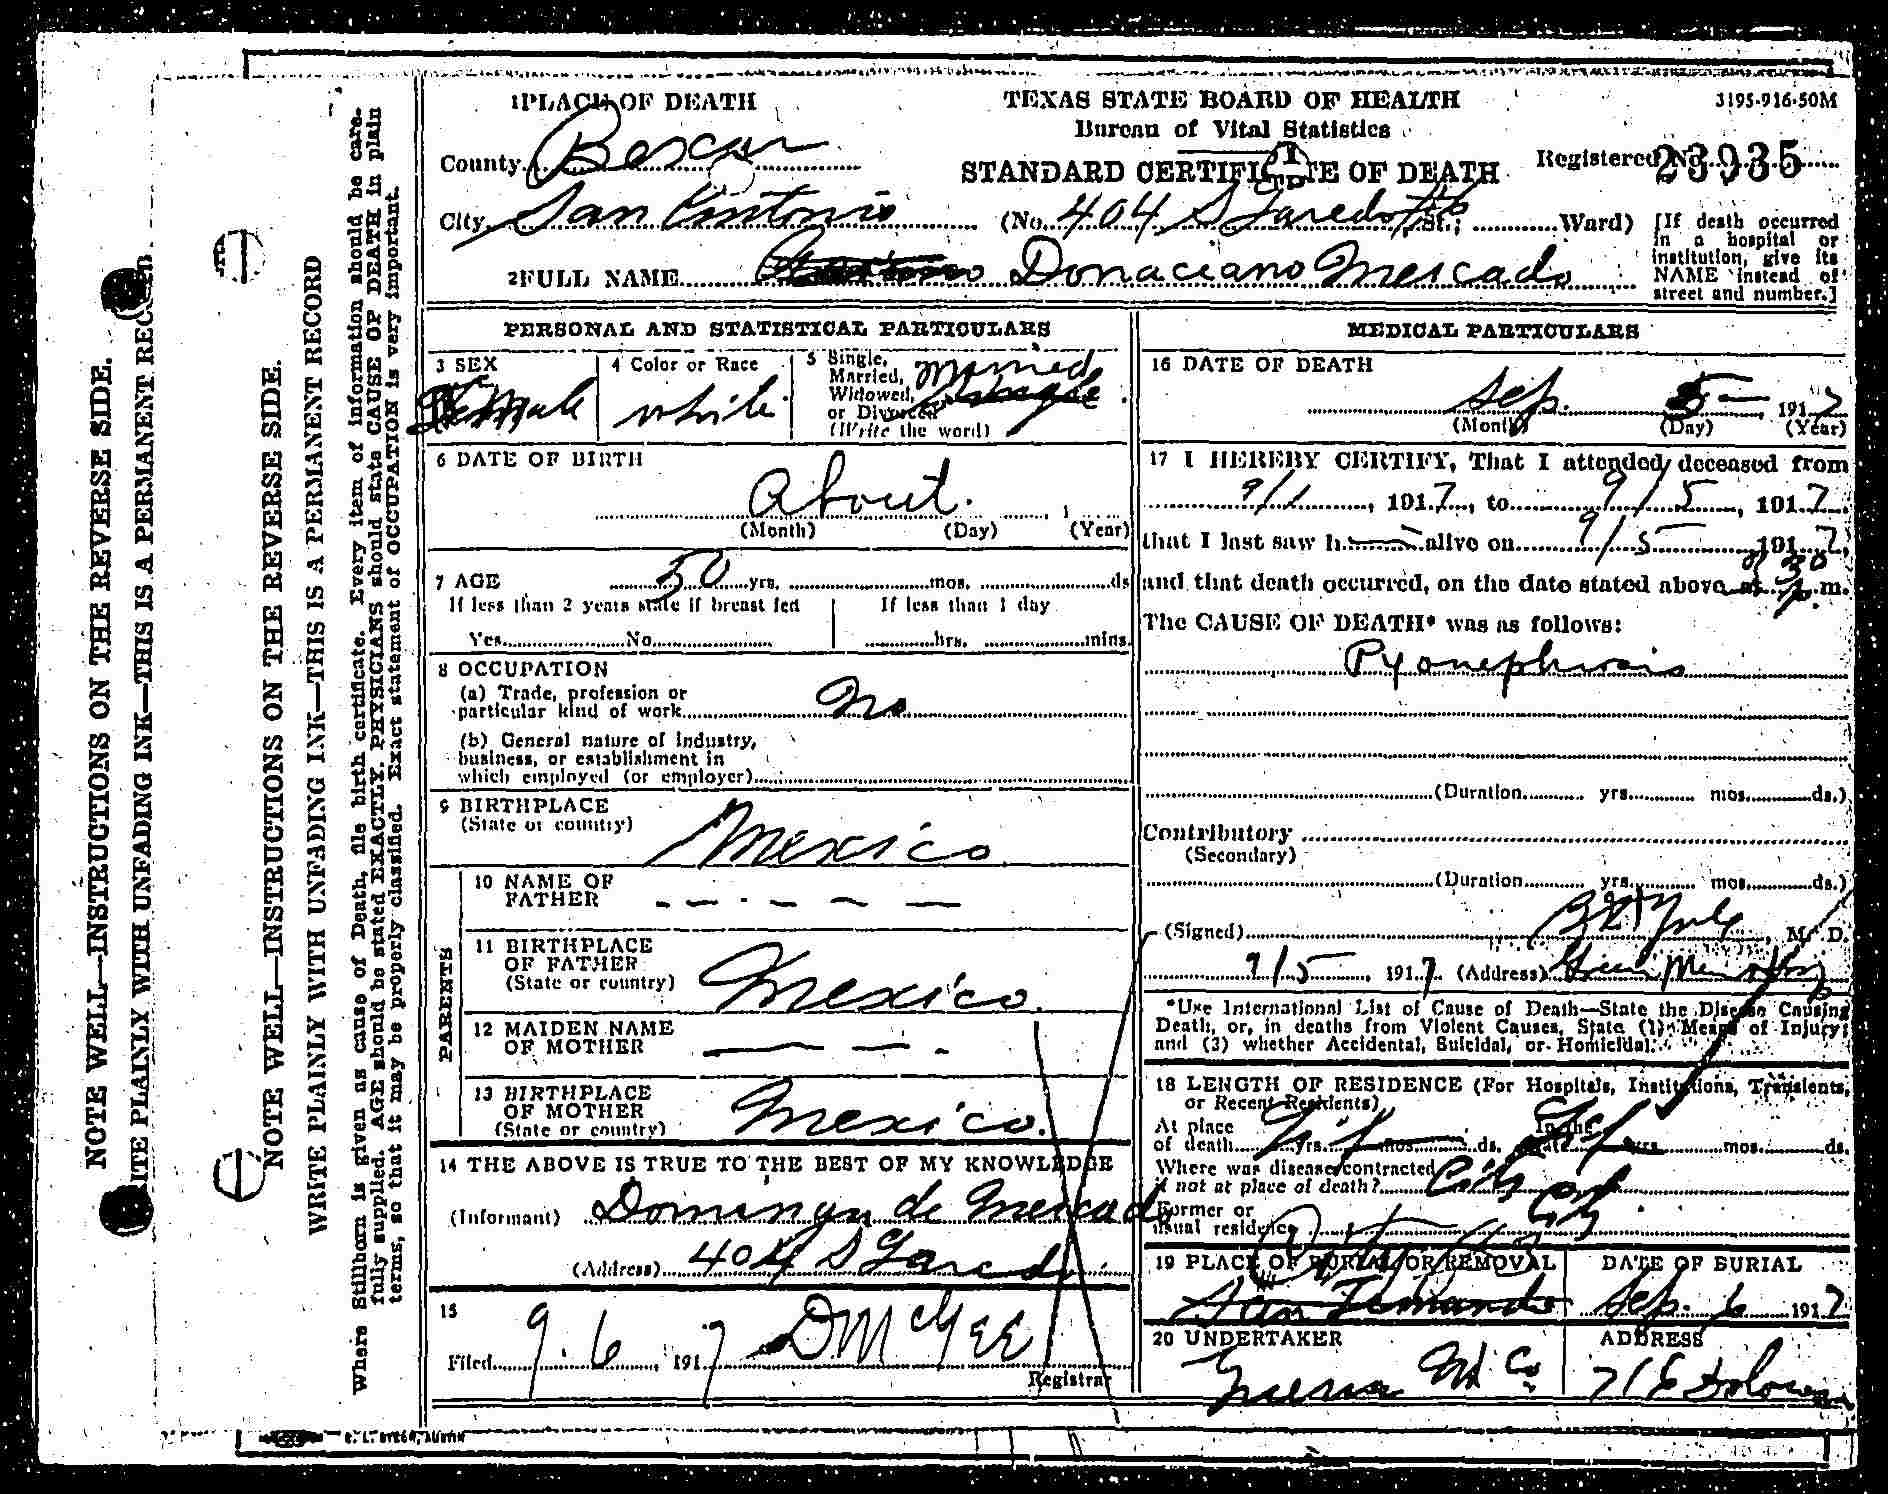 1 PLACE OF DEATH
TEXAS STATE BOARD OF HEALTH
3195-916-50M
Bureau of Vital Statistics
County Bexar
STANDARD CERTIFICATE OF DEATH
Registered No. 23935
City San Antonio (No. 404 S Laredo St.; Ward)
[If death occurred
in a hospital or
institution, give its
NAME instead of
street and number.]
2 FULL NAME Donaciano Mercado
PERSONAL AND STATISTICAL PARTICULARS
3 SEX
Male
4 Color or Race
white
5 Single,
Married,
Widowed,
or Divorced
(Write the word)
Married
6 DATE OF BIRTH
About
(Month) (Day) (Year)
7 AGE 50 yrs. mos. ds
If less than 2 years state if breast fed
Yes No
If less than 1 day
hrs. mins.
8 OCCUPATION
(a) Trade, profession or
particular kind of work No
(b) General nature of industry,
business, or establishment in
which employed (or employer)
9 BIRTHPLACE
(State or country)
Mexico
PARENTS
10 NAME OF
FATHER
11 BIRTHPLACE
OF FATHER
(State or country)
Mexico.
12 MAIDEN NAME
OF MOTHER
13 BIRTHPLACE
OF MOTHER
(State or country)
Mexico.
14 THE ABOVE IS TRUE TO THE BEST OF MY KNOWLEDGE
(Informant) de Mercado
(Address) 404 S Laredo
15
Filed 9.6, 1917 D McGEE
Registrar
MEDICAL PARTICULARS
16 DATE OF DEATH
Sep. 5 1917
(Month) (Day) (Year)
17 I HEREBY CERTIFY, That I attended deceased from
9/1, 1917, to 9/5, 1917,
that I last saw h alive on 9/5 1917,
and that death occurred, on the date stated above at 30 p.m.
The CAUSE OF DEATH* was as follows:
Pyonephrosis
(Duration yrs. mos. ds.)
Contributory
(Secondary)
(Duration yrs. mos. ds.)
(Signed) M. D.
9/5, 1917 (Address)
*Use International List of Cause of Death—State the Disease Causing
Death, or, in deaths from Violent Causes, State (1) Means of Injury;
and (2) whether Accidental, Suicidal, or Homicidal.
18 LENGTH OF RESIDENCE (For Hospitals, Institutions, Transients,
or Recent Residents)
At place
of death yrs. mos. ds.
In the
State yrs. mos. ds.
Where was disease contracted
if not at place of death? City
Former or
usual residence City
19 PLACE OF BURIAL OR REMOVAL
San Fernando
DATE OF BURIAL
Sep. 6 1917
20 UNDERTAKER
Co
ADDRESS
NOTE WELL—INSTRUCTIONS ON THE REVERSE SIDE.
WRITE PLAINLY WITH UNFADING INK—THIS IS A PERMANENT RECORD
NOTE WELL—INSTRUCTIONS ON THE REVERSE SIDE.
WRITE PLAINLY WITH UNFADING INK—THIS IS A PERMANENT RECORD
Where Stillborn is given as cause of Death, file birth certificate. Every item of information should be care-
fully supplied. AGE should be stated EXACTLY. PHYSICIANS should state CAUSE OF DEATH in plain
terms, so that it may be properly classified. Exact statement of OCCUPATION is very important.